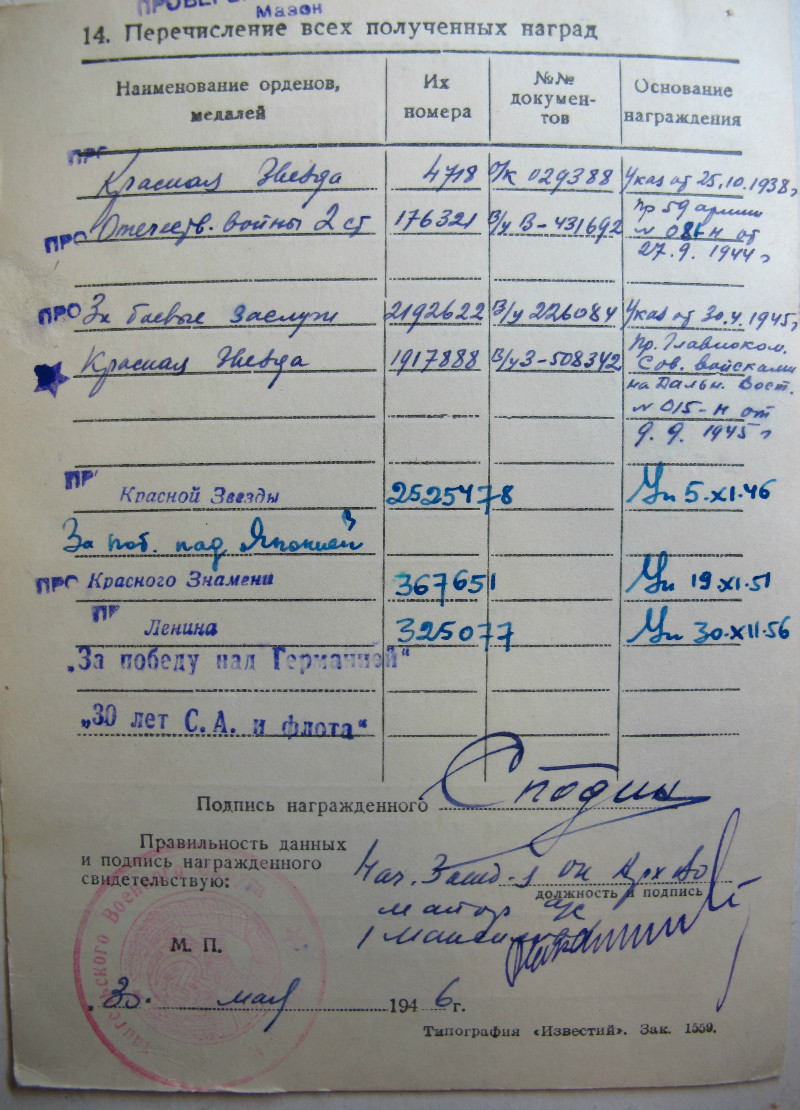 ПРОВЕРЕ
Мазон
14. Перечисление всех полученных наград
Наименование орденов, медалей
Их номера
№№ документов
Основание награждения
ПРО
Красная Звезда 4718 О/к 029388 Указ от 25.10.1938 г
ПРО Отечеств. войны 2 ст 176321 В/у В-431692 Пр 59 армии
№ 081-н от
27.9. 1944 г
ПРО За боевые заслуги 2192622 В/у 226084 Указ от 30.4.1945 г
Красная Звезда 1917888 В/у З-508342 Пр. Главноком.
Сов. войсками
на Дальн. Вост.
№ 015-н от
9. 9. 1945 г
ПР
Красной Звезды 2525478 Ук 5.XI.46
За поб. над Японией
ПРО Красного Знамени 367651 Ук 19.XI.51
ПР
Ленина 325077 Ук 30.XII.56
„За победу над Германией“
„30 лет С.А. и флота“
Подпись награжденного Сподин
Правильность данных
и подпись награжденного
свидетельствую:
Нач.
должность и подпись
майор
М. П.
„30. мая 1946 г.
Типография «Известий». Зак. 1559.